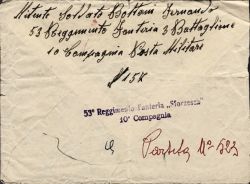 Mitente Soldato Bottani Fernando
53 Reggimento Fanteria 3 Battaglione
10 Compagnia Posta Militare
N 15K
53° Reggimento Fanteria „Sforzesca"
10° Compagnia
Partita N° 523